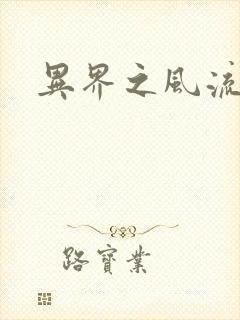 異界之風流
路寶業